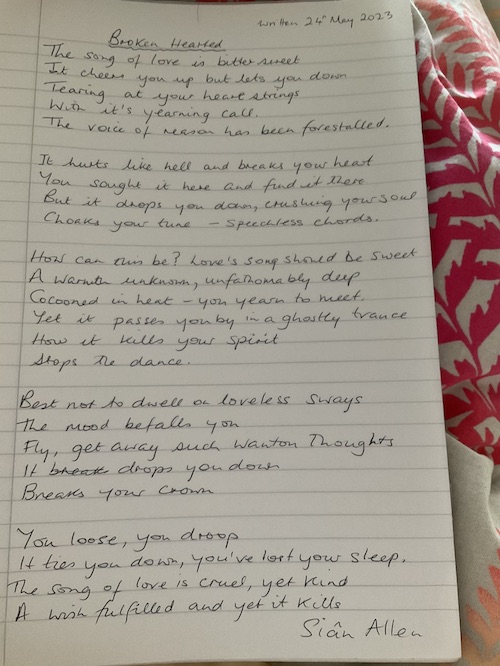 written 24th May 2023
Broken Hearted
The song of love is bitter sweet
It cheers you up but lets you down
Tearing at your heart strings
With it's yearning call.
The voice of reason has been forestalled.
It hurts like hell and breaks your heart
You sought it here and find it there
But it drops you down, crushing your soul
Choaks your tune – speechless chords.
How can this be? Love's song should be sweet
A warmth unknown, unfathomably deep
Cocooned in heat – you yearn to meet.
Yet it passes you by in a ghostly trance
How it kills your spirit
Stops the dance.
Best not to dwell on loveless sways
The mood befalls you
Fly, get away such wanton thoughts
It break drops you down
Breaks your crown
You loose, you droop
It ties you down, you've lost your sleep.
The song of love is cruel, yet kind
A wish fulfilled and yet it kills
Siân Allen